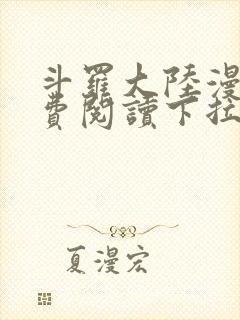 斗羅大陸漫
費閱讀下拉
夏漫宏